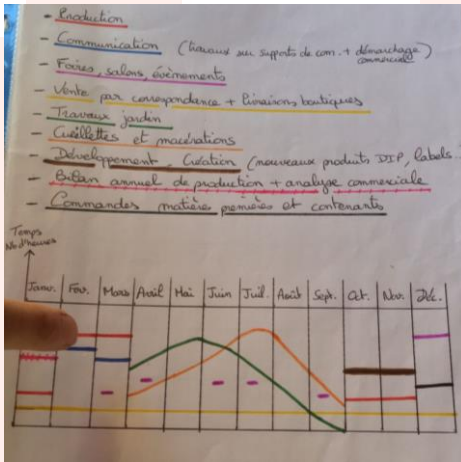 - Production
- Communication (travaux sur supports de com. + démarchage commerciale)
- Foires, salons, évènements
- Vente par correspondance + livraisons boutiques
- Travaux jardin
- Cueillettes et macérations
- Développement - Création (nouveaux produits, DIP, labels
- Bilan annuel de production + analyse commerciale
- Commandes matière premières et contenants
Temps
Nb d'heures
Janv. Fev. Mars Avril Mai Juin Juil. Août Sept. Oct. Nov. Déc.